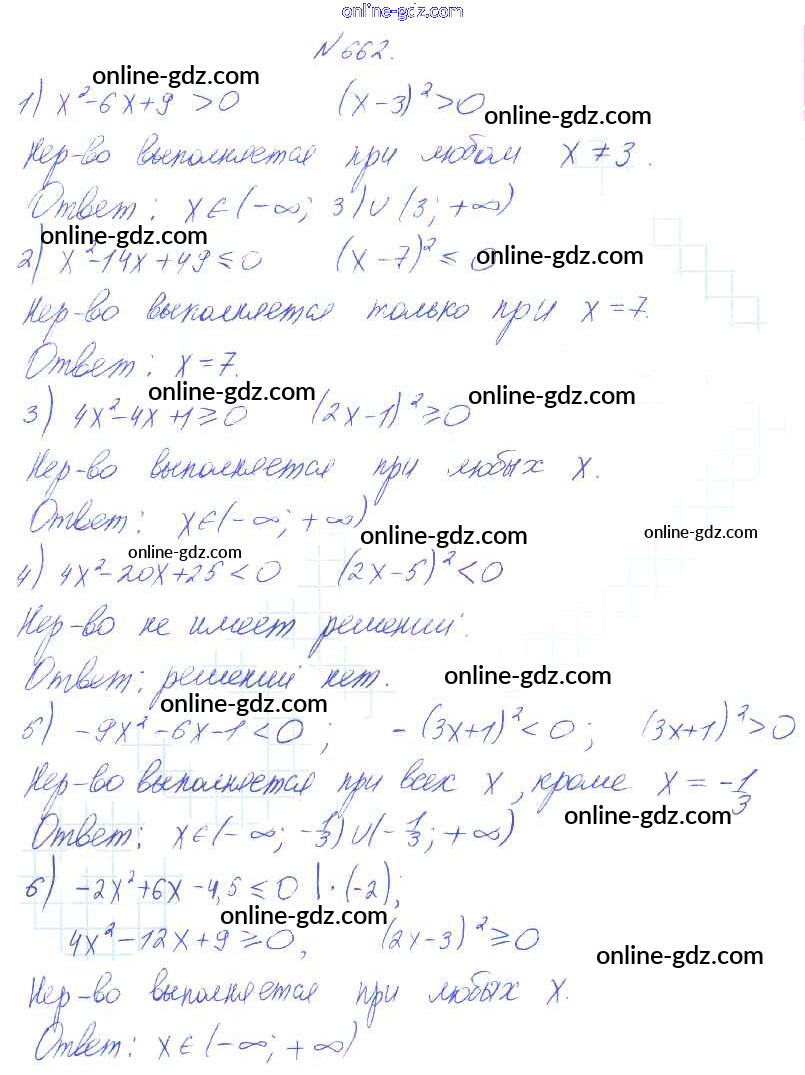 online-gdz.com
№662.
online-gdz.com
1) x²-6x+9 >0 (x-3)²>0
online-gdz.com
Нер-во выполняется при любом x ≠ 3.
Ответ: x∈(-∞; 3)∪(3; +∞)
online-gdz.com
2) x²-14x+49≤0 (x-7)²≤0
online-gdz.com
Нер-во выполняется только при x=7.
Ответ: x=7.
online-gdz.com
online-gdz.com
3) 4x²-4x+1≥0 (2x-1)²≥0
Нер-во выполняется при любых x.
Ответ: x∈(-∞; +∞)
online-gdz.com
online-gdz.com
online-gdz.com
4) 4x²-20x+25<0 (2x-5)²<0
Нер-во не имеет решений.
Ответ: решений нет.
online-gdz.com
online-gdz.com
5) -9x²-6x-1<0; -(3x+1)²<0; (3x+1)²>0
Нер-во выполняется при всех x, кроме x=-1/3
online-gdz.com
Ответ: x∈(-∞; -1/3)∪(-1/3; +∞)
6) -2x²+6x-4,5≤0 |·(-2);
online-gdz.com
4x²-12x+9≥0, (2x-3)²≥0
online-gdz.com
Нер-во выполняется при любых x.
Ответ: x∈(-∞; +∞)